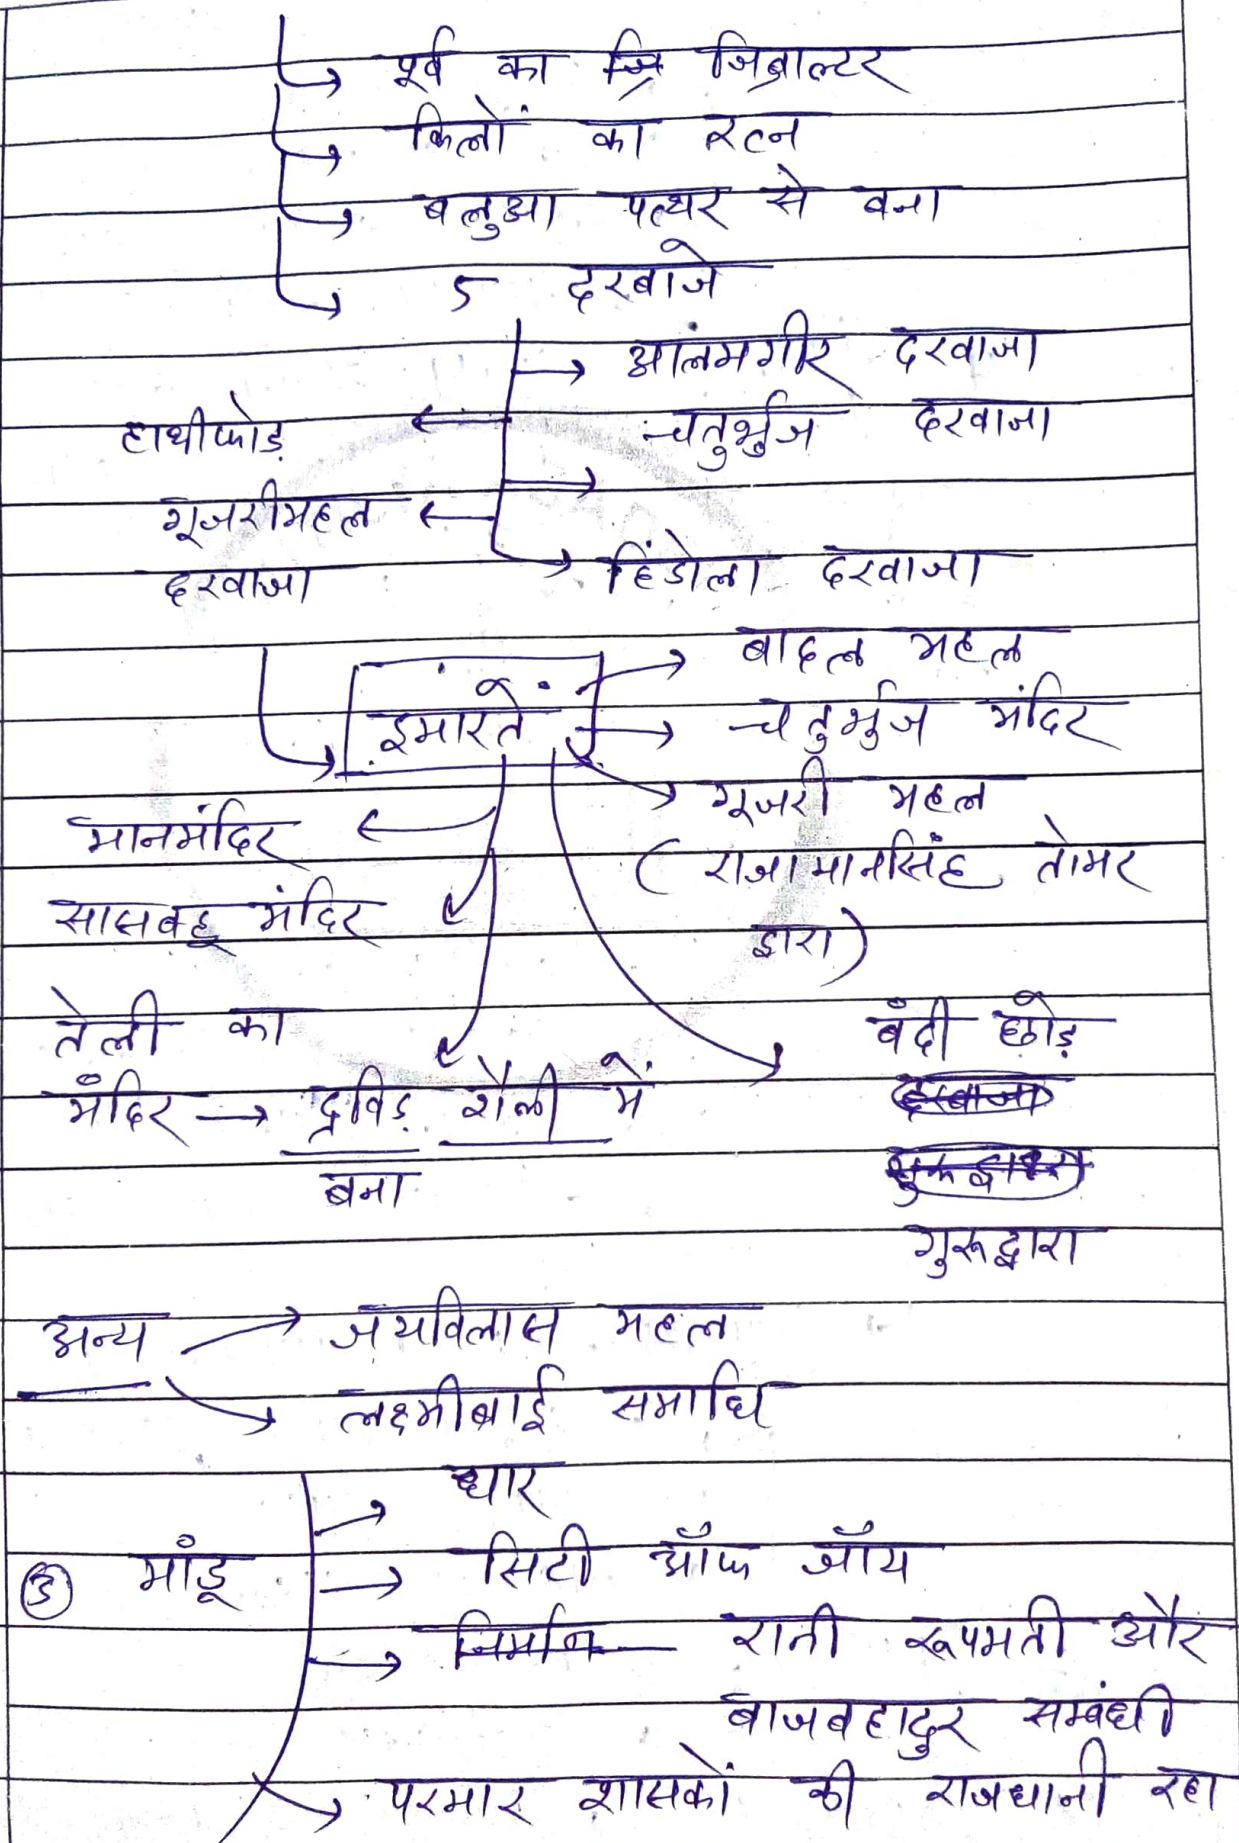 पूर्व का जिब्राल्टर
किलों का रत्न
बलुआ पत्थर से बना
5 दरबाजे
आलमगीर दरवाजा
हाथीफोड़
चतुर्भुज दरवाजा
गूजरीमहल
दरवाजा
हिंडोला दरवाजा
बादल महल
इमारतें
चतुर्भुज मंदिर
गूजरी महल
मानमंदिर
(राजा मानसिंह तोमर
द्वारा)
सासबहू मंदिर
तेली का
मंदिर → द्रविड़ शैली में
बना
बंदी छोड़
दरबाजा
गुरूद्वारा
अन्य
जयविलास महल
लक्ष्मीबाई समाधि
धार
③ मांडू
सिटी ऑफ जॉय
निर्माण — रानी रूपमती और
बाजबहादुर सम्बंधी
परमार शासकों की राजधानी रहा